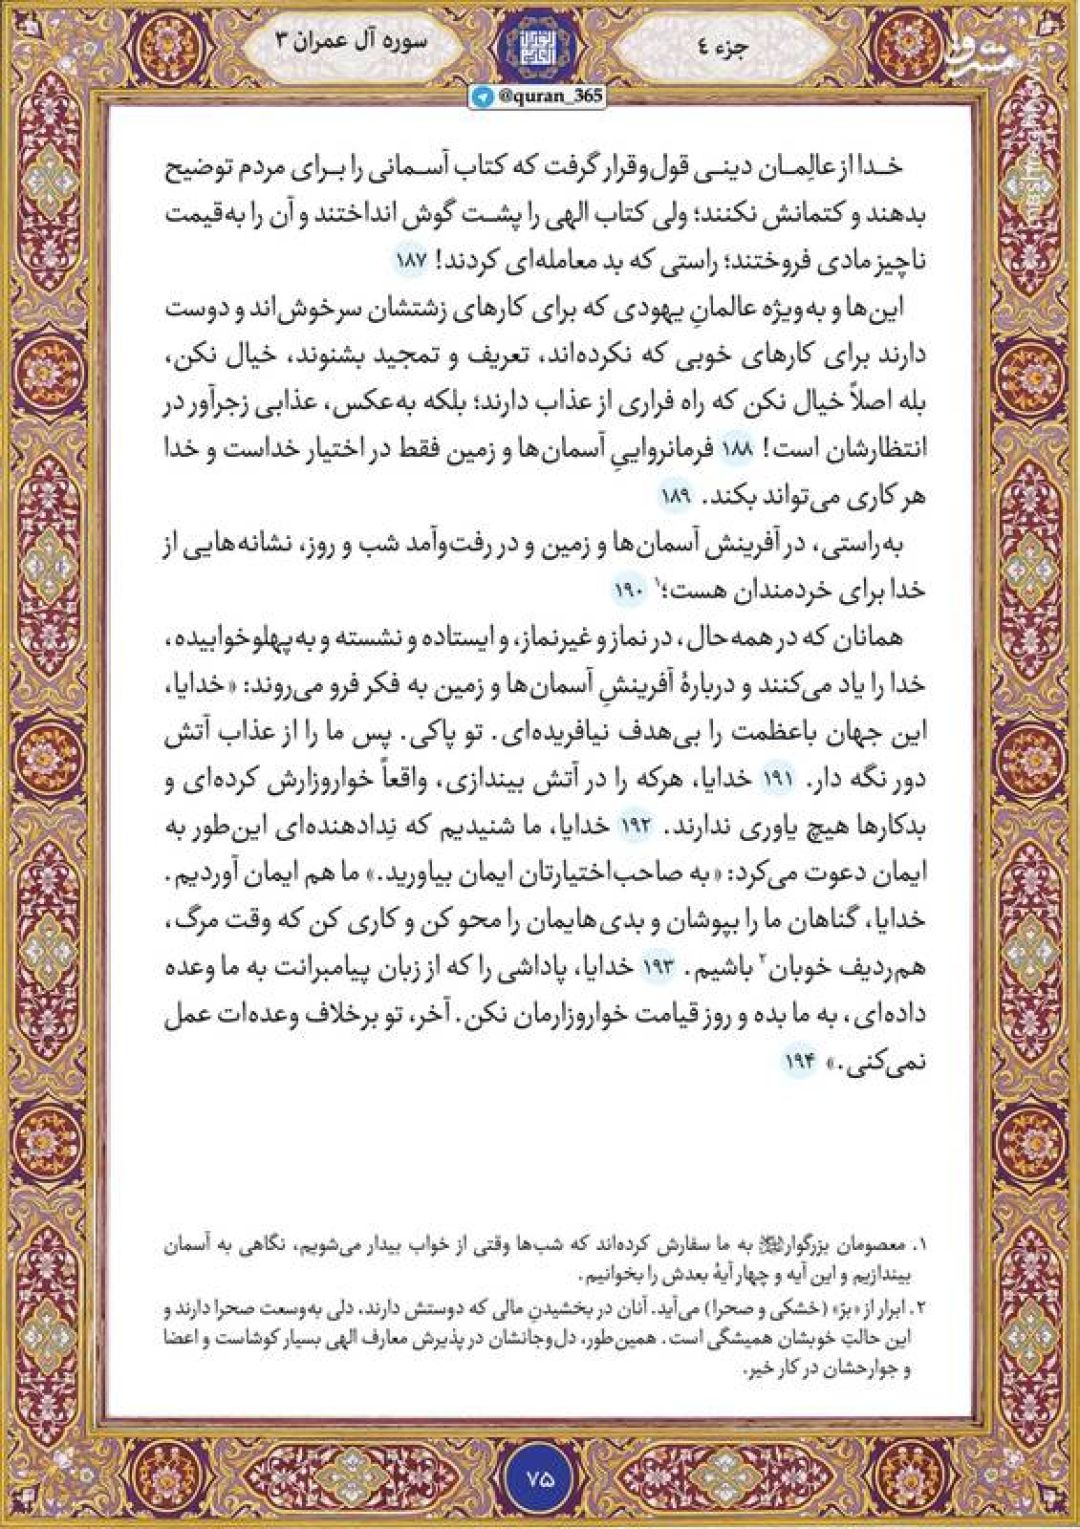 جزء ٤
سوره آل عمران ۳
@quran_365
مشرق
خدا از عالِمان دینی قول‌وقرار گرفت که کتاب آسمانی را برای مردم توضیح
بدهند و کتمانش نکنند؛ ولی کتاب الهی را پشت گوش انداختند و آن را به‌قیمت
ناچیز مادی فروختند؛ راستی که بد معامله‌ای کردند! ۱۸۷
این‌ها و به‌ویژه عالمانِ یهودی که برای کارهای زشتشان سرخوش‌اند و دوست
دارند برای کارهای خوبی که نکرده‌اند، تعریف و تمجید بشنوند، خیال نکن،
بله اصلاً خیال نکن که راه فراری از عذاب دارند؛ بلکه به‌عکس، عذابی زجرآور در
انتظارشان است! ۱۸۸ فرمانرواییِ آسمان‌ها و زمین فقط در اختیار خداست و خدا
هر کاری می‌تواند بکند. ۱۸۹
به‌راستی، در آفرینش آسمان‌ها و زمین و در رفت‌وآمد شب و روز، نشانه‌هایی از
خدا برای خردمندان هست؛۱ ۱۹۰
همانان که در همه حال، در نماز و غیرنماز، و ایستاده و نشسته و به‌پهلوخوابیده،
خدا را یاد می‌کنند و دربارهٔ آفرینشِ آسمان‌ها و زمین به فکر فرو می‌روند: «خدایا،
این جهان باعظمت را بی‌هدف نیافریده‌ای. تو پاکی. پس ما را از عذاب آتش
دور نگه دار. ۱۹۱ خدایا، هرکه را در آتش بیندازی، واقعاً خواروزارش کرده‌ای و
بدکارها هیچ یاوری ندارند. ۱۹۲ خدایا، ما شنیدیم که نِدادهنده‌ای این‌طور به
ایمان دعوت می‌کرد: «به صاحب‌اختیارتان ایمان بیاورید.» ما هم ایمان آوردیم.
خدایا، گناهان ما را بپوشان و بدی‌هایمان را محو کن و کاری کن که وقت مرگ،
هم‌ردیف خوبان۲ باشیم. ۱۹۳ خدایا، پاداشی را که از زبان پیامبرانت به ما وعده
داده‌ای، به ما بده و روز قیامت خواروزارمان نکن. آخر، تو برخلاف وعده‌ات عمل
نمی‌کنی.» ۱۹۴
۱. معصومان بزرگوار به ما سفارش کرده‌اند که شب‌ها وقتی از خواب بیدار می‌شویم، نگاهی به آسمان
بیندازیم و این آیه و چهار آیهٔ بعدش را بخوانیم.
۲. ابرار از «بَرّ» (خشکی و صحرا) می‌آید. آنان در بخشیدنِ مالی که دوستش دارند، دلی به‌وسعت صحرا دارند و
این حالتِ خوبشان همیشگی است. همین‌طور، دل‌وجانشان در پذیرش معارف الهی بسیار کوشاست و اعضا
و جوارحشان در کار خیر.
۷۵